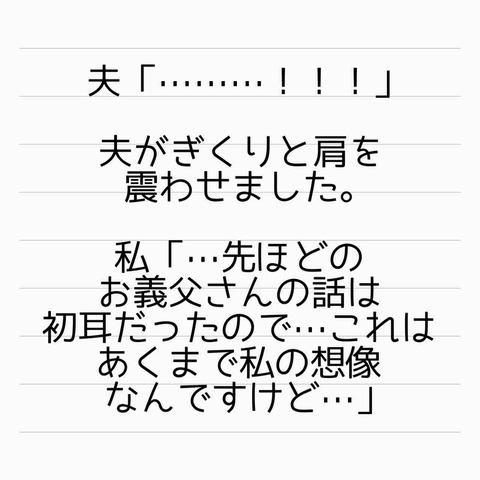 夫「………！！！」
夫がぎくりと肩を
震わせました。
私「…先ほどの
お義父さんの話は
初耳だったので…これは
あくまで私の想像
なんですけど…」